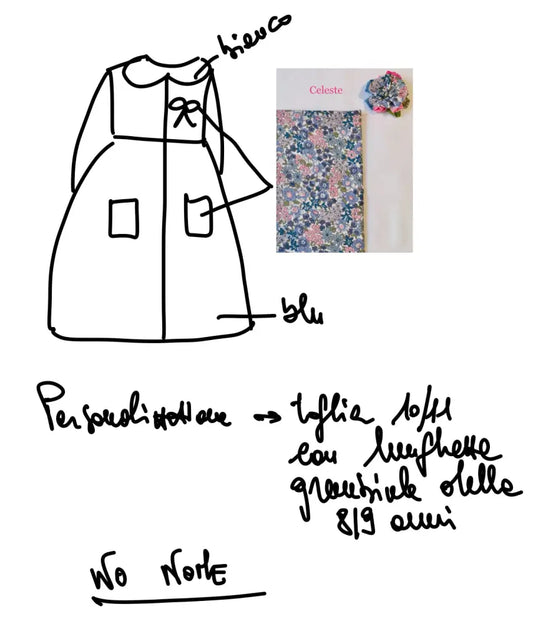 bianco
Celeste
blu
Personalizzazione → taglia 10/11
con lunghezza
grembiule della
8/9 anni
NO NOME